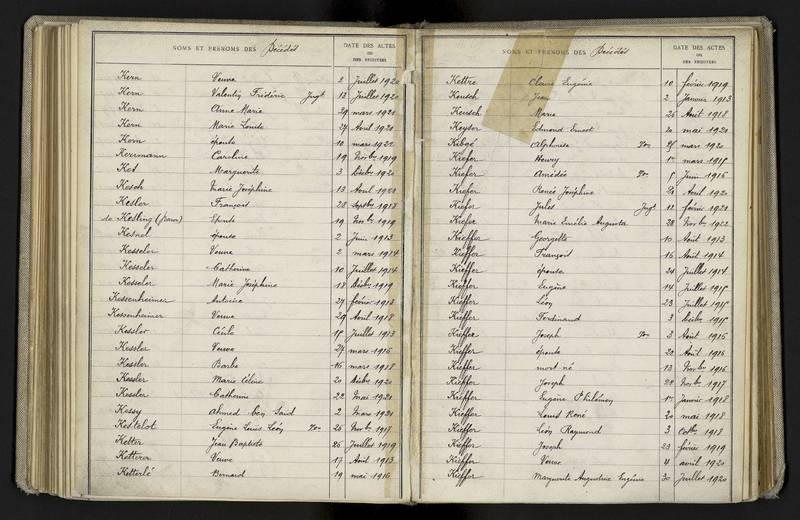 NOMS ET PRÉNOMS DES Décédés
DATE DES ACTES
OU
DES REGISTRES
Kern Veuve 2 Juillet 1920
Kern Valentin Frédéric Jugt 13 Juillet 1920
Kern Anne Marie 29 mars 1921
Kern Marie Louise 27 Avril 1920
Kern épouse 10 mars 1922
Kerrmann Caroline 19 Novbre 1919
Ket Marguerite 3 Décbre 1920
Kesch Marie Joséphine 13 Avril
Kesler François 28 Septbre 1918
de Kesling épouse 19 Novbre 1919
Kesnel épouse 2 Juin 1913
Kesseler Veuve 2 mars 1914
Kesseler Catherine 10 Juillet 1914
Kesseler Marie Joséphine 18 Décbre 1919
Kessenheimer Antoine 27 février 1918
Kessenheimer Veuve 29 Avril 1918
Kessler Cécile 15 Juillet 1913
Kessler Veuve 24 mars 1916
Kessler Barbe 16 mars 1918
Kessler Marie Céline 20 Décbre 1920
Kessler Catherine 22 Mai 1921
Kessy Ahmed ben Said 2 Mars 1921
Kestelot Eugène Louis Léon Ton 26 Novbre 1917
Ketter Jean Baptiste 26 Juillet 1919
Ketterer Veuve 17 Août 1913
Ketterlé Bernard 19 mai 1916
NOMS ET PRÉNOMS DES Décédés
DATE DES ACTES
OU
DES REGISTRES
Kettre Claire Eugénie 10 février 1919
Keusch Jean 2 Janvier 1913
Keusch Marie 26 Août 1918
Keyser Edmond Ernest 20 mai 1920
Alphonse Ton mars 1920
Kiefer Henry mars 1915
Kiefer Amédée Ton 5 Juin 1916
Kiefer Renée Joséphine Avril 1920
Kiefer Jules Jugt 11 février 1921
Kiefer Marie Emélie Augusta 28 Novbre 1922
Kieffer Georgette 10 Août 1913
Kieffer François 16 Août 1914
Kieffer épouse 24 Juillet 1914
Kieffer Eugène 14 Juillet 1915
Kieffer Léon 23 Juillet 1915
Kieffer Ferdinand 3 Décbre 1915
Kieffer Joseph Ton 3 Août 1916
Kieffer épouse 20 Août 1916
Kieffer mort-né 13 Novbre 1916
Kieffer Joseph 22 Novbre 1917
Kieffer Eugène Philémon Janvier 1918
Kieffer Louis René 20 mai 1918
Kieffer Léon Raymond 3 Octbre 1918
Kieffer Joseph 23 février 1919
Kieffer Veuve 4 avril 1920
Kieffer Marguerite Augustine Eugénie 30 Juillet 1920